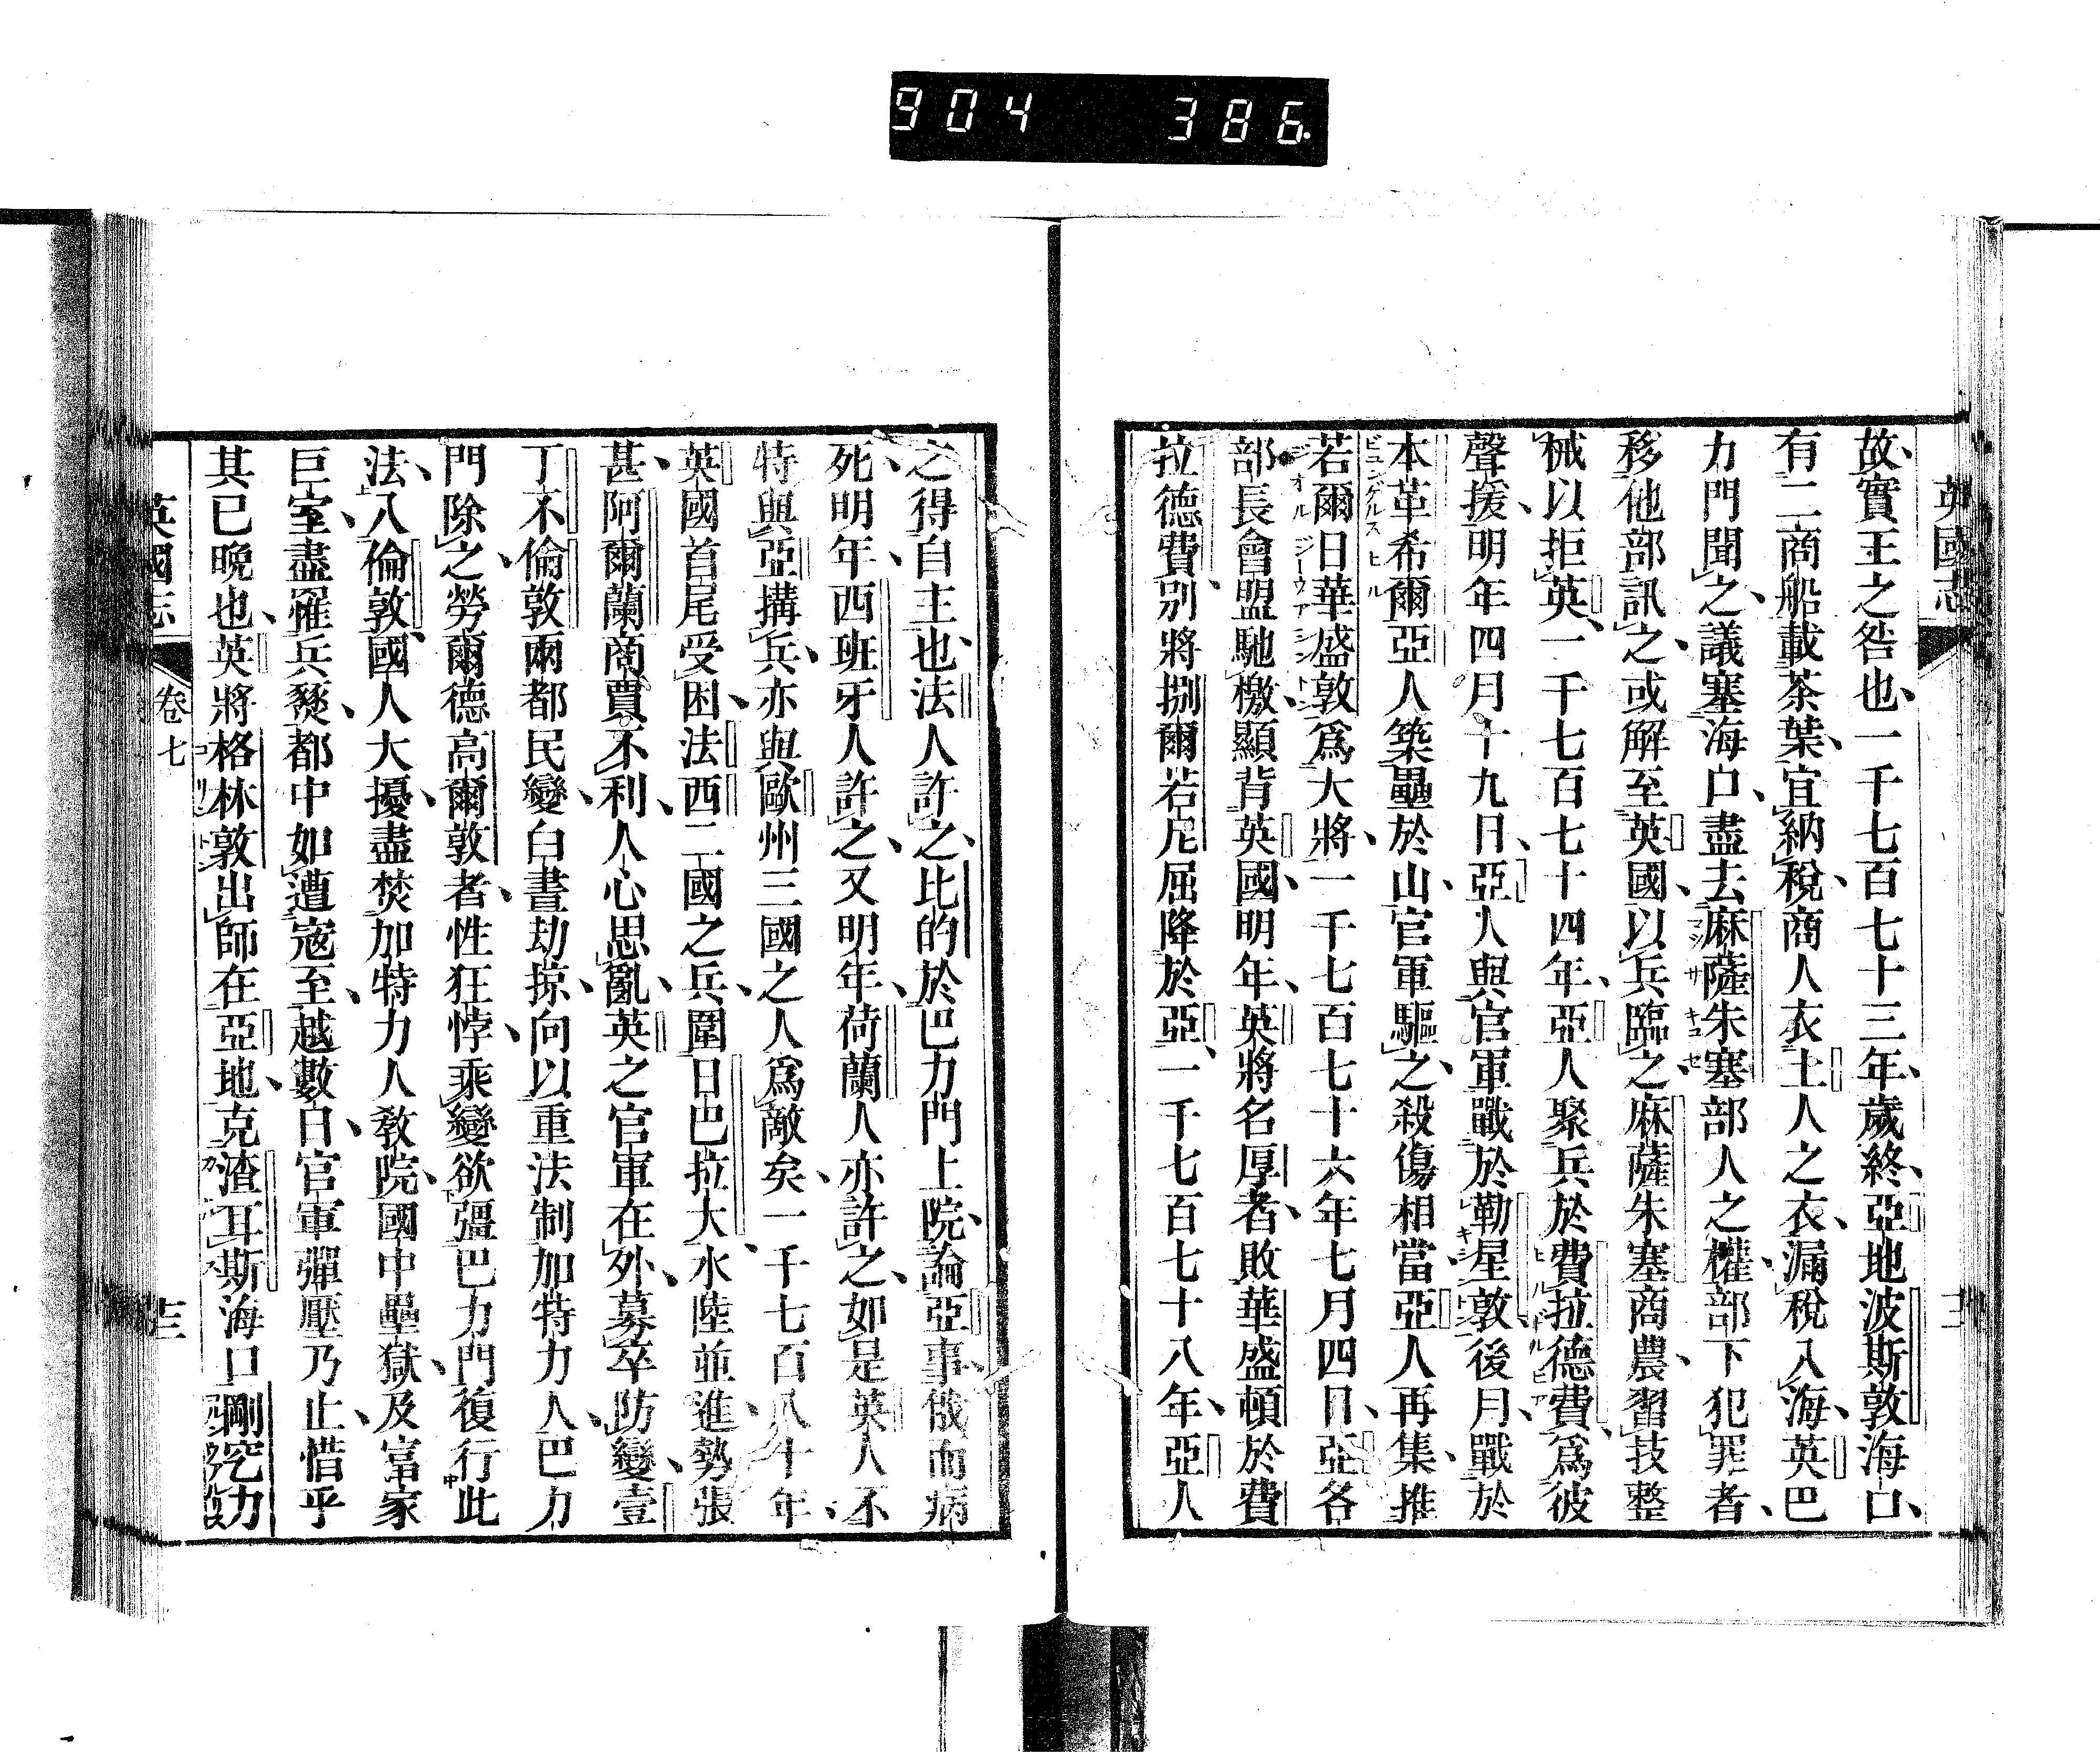 904 386.
英國志
故實王之咎也一千七百七十三年歲終亞地波斯敦海口
有二商船載茶葉宜納稅商人衣土人之衣漏稅入海英巴
力門聞之議塞海口盡去麻薩朱塞部人之權部下犯罪者
移他部訊之或解至英國以兵臨之麻薩朱塞商農習技整
械以拒英一千七百七十四年亞人聚兵於費拉德費爲彼
聲援明年四月十九日亞人與官軍戰於勒星敦後月戰於
本革希爾亞人築壘於山官軍驅之殺傷相當亞人再集推
若爾日華盛敦爲大將一千七百七十六年七月四日亞各
部長會盟馳檄顯背英國明年英將名厚者敗華盛頓於費
拉德費別將捌爾若尼屈降於亞一千七百七十八年亞人
之得自主也法人許之比的於巴力門上院論亞事俄而病
死明年西班牙人許之又明年荷蘭人亦許之如是英人不
特與亞搆兵亦與歐州三國之人爲敵矣一千七百八十年
英國首尾受困法西二國之兵圍日巴拉大水陸並進勢張
甚阿爾蘭商賈不利人心思亂英之官軍在外募卒防變壹
丁不倫敦兩都民變白晝劫掠向以重法制加特力人巴力
門除之勞爾德高爾敦者性狂悖乘變欲彊巴力門復行此
法入倫敦國人大擾盡焚加特力人教院國中壘獄及富家
巨室盡罹兵燹都中如遭寇至越數日官軍彈壓乃止惜乎
其已晩也英將格林敦出師在亞地克渣耳斯海口剛究力
英國志
卷七